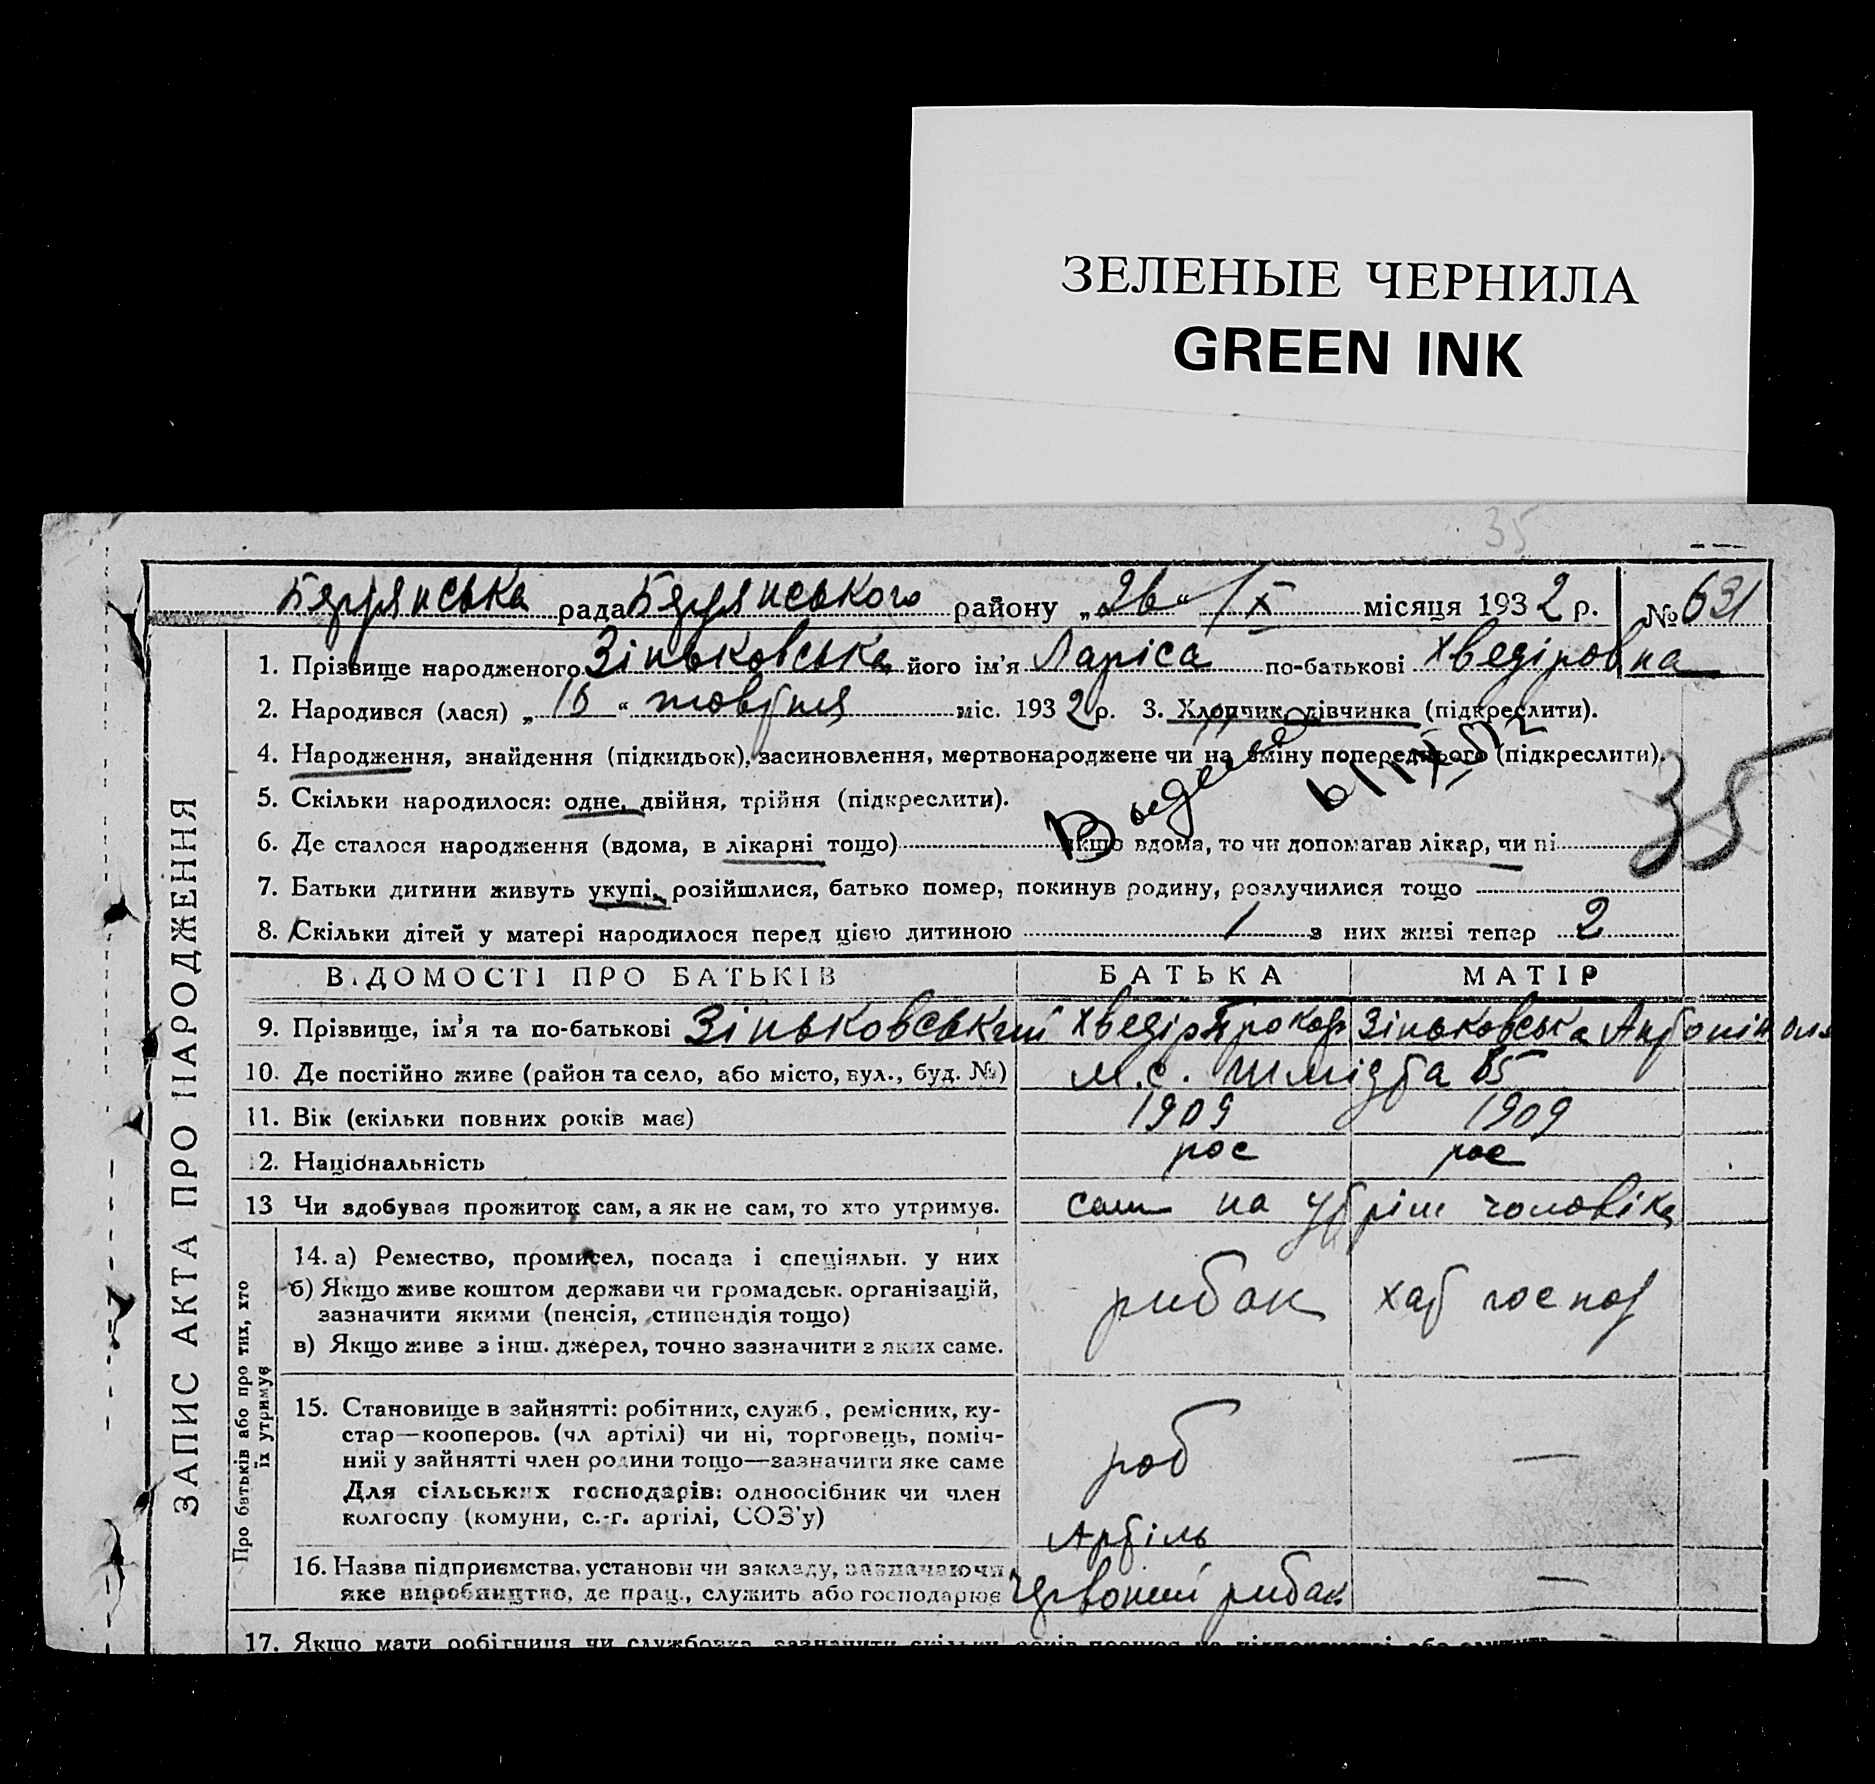 ЗЕЛЕНЫЕ ЧЕРНИЛА
GREEN INK
35
Бердянська рада Бердянського району „26“ /X місяця 1932 р. № 631
1. Прізвище народженого Зіньковська його ім'я Ларіса по-батькові Хведіровна
2. Народився (лася) „16“ жовтня міс. 1932 р. 3. Хлопчик, дівчинка (підкреслити).
4. Народження, знайдення (підкидьок), засиновлення, мертвонароджене чи на зміну попереднього (підкреслити).
5. Скільки народилося: одне, двійня, трійня (підкреслити).
35
6. Де сталося народження (вдома, в лікарні тощо) якщо вдома, то чи допомагав лікар, чи ні
7. Батьки дитини живуть укупі, розійшлися, батько помер, покинув родину, розлучилися тощо
8. Скільки дітей у матері народилося перед цією дитиною 1 з них живі тепер 2
ВІДОМОСТІ ПРО БАТЬКІВ БАТЬКА МАТІР
9. Прізвище, ім'я та по-батькові Зіньковський Хведір Прокор Зіньковська Антоніна
10. Де постійно живе (район та село, або місто, вул., буд. №) м.с. Шмідта 85
11. Вік (скільки повних років має) 1909 1909
12. Національність рос рос
13 Чи здобував прожиток сам, а як не сам, то хто утримує. сам на утрім чоловіка
14. а) Ремество, промисел, посада і спеціяльн. у них
б) Якщо живе коштом держави чи громадськ. організацій,
зазначити якими (пенсія, стипендія тощо) рибак хат господ
в) Якщо живе з інш. джерел, точно зазначити з яких саме.
15. Становище в зайнятті: робітник, служб., ремісник, ку-
стар—кооперов. (чл артілі) чи ні, торговець, поміч-
ний у зайнятті член родини тощо—зазначити яке саме роб —
Для сільських господарів: одноосібник чи член
колгоспу (комуни, с.-г. артілі, СОЗ'у)
Артіль
16. Назва підприємства, установи чи закладу, зазначаючи
яке виробництво, де прац., служить або господарює Червоний рибак —
17. Якщо мати робітниця чи службовка, зазначити скільки
ЗАПИС АКТА ПРО НАРОДЖЕННЯ
Про батьків або про тих, хто
їх утримує